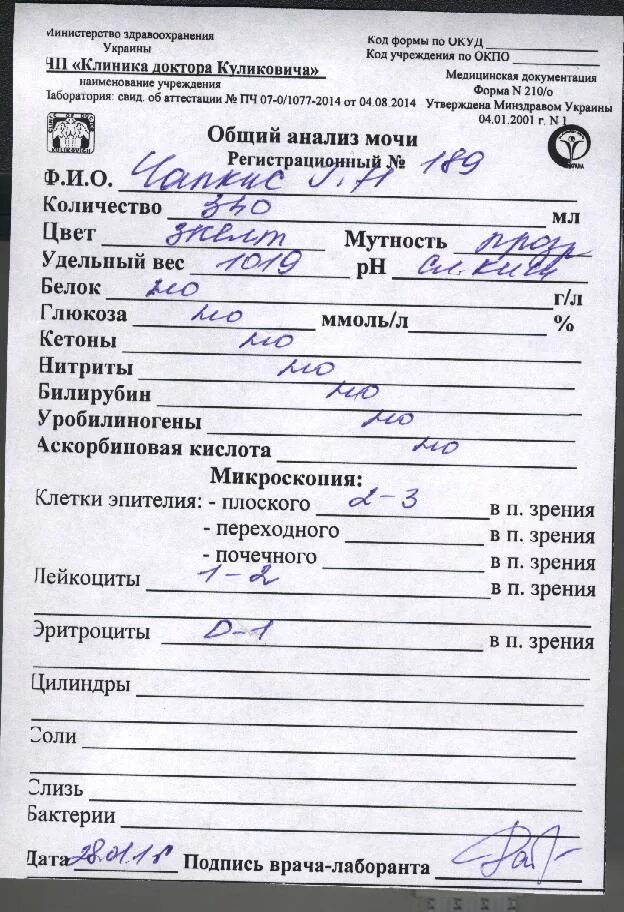 Министерство здравоохранения
Украины
Код формы по ОКУД
Код учреждения по ОКПО
ЧП «Клиника доктора Куликовича»
наименование учреждения
Медицинская документация
Форма N 210/о
Лаборатория: свид. об аттестации № ПЧ 07-0/1077-2014 от 04.08.2014
Утверждена Минздравом Украины
04.01.2001 г. N 1
Общий анализ мочи
Регистрационный № 189
Ф.И.О. Чапкис
Количество мл
Цвет желт Мутность прозр
Удельный вес 1019 рН сл. кисл
Белок но г/л
Глюкоза но ммоль/л %
Кетоны но
Нитриты но
Билирубин но
Уробилиногены но
Аскорбиновая кислота но
Микроскопия:
Клетки эпителия: - плоского 2-3 в п. зрения
- переходного в п. зрения
- почечного в п. зрения
Лейкоциты 1-2 в п. зрения
Эритроциты 0-1 в п. зрения
Цилиндры
Соли
Слизь
Бактерии
Дата Подпись врача-лаборанта